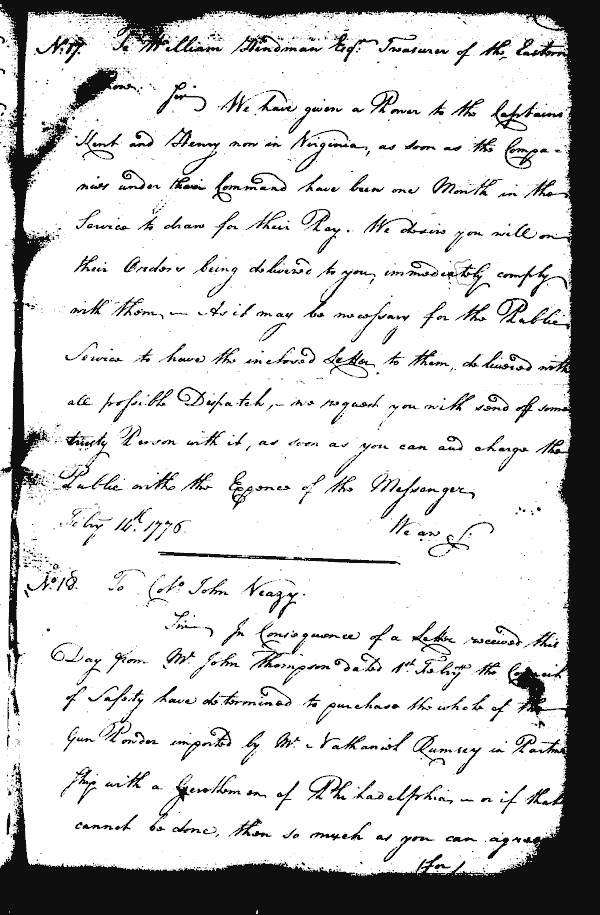 No. 17. To William Hindman Esqr. Treasurer of the Eastern
Shore. Sir, We have given a Power to the Captains
Kent and Henry now in Virginia, as soon as the Compa-
nies under their Command have been one Month in the
Service to draw for their Pay. We desire you will on
their Orders being delivered to you, immediately comply
with them, — As it may be necessary for the Public
Service to have the inclosed Letter to them, delivered with
all possible Dispatch, — we request you with send off some
trusty Person with it, as soon as you can and charge the
Public with the Expence of the Messenger,
Febry 14th. 1776. We are &c.
No. 18. To Colo. John Veazy.
Sir, In Consequence of a Letter received this
Day from Mr. John Thompson dated 1st Febry the Council
of Safety have determined to purchase the whole of the
Gun Powder imported by Mr. Nathaniel Rumsey in Partner
ship with a Gentleman of Philadelphia, — or if that
cannot be done, then so much as you can agree
(for)